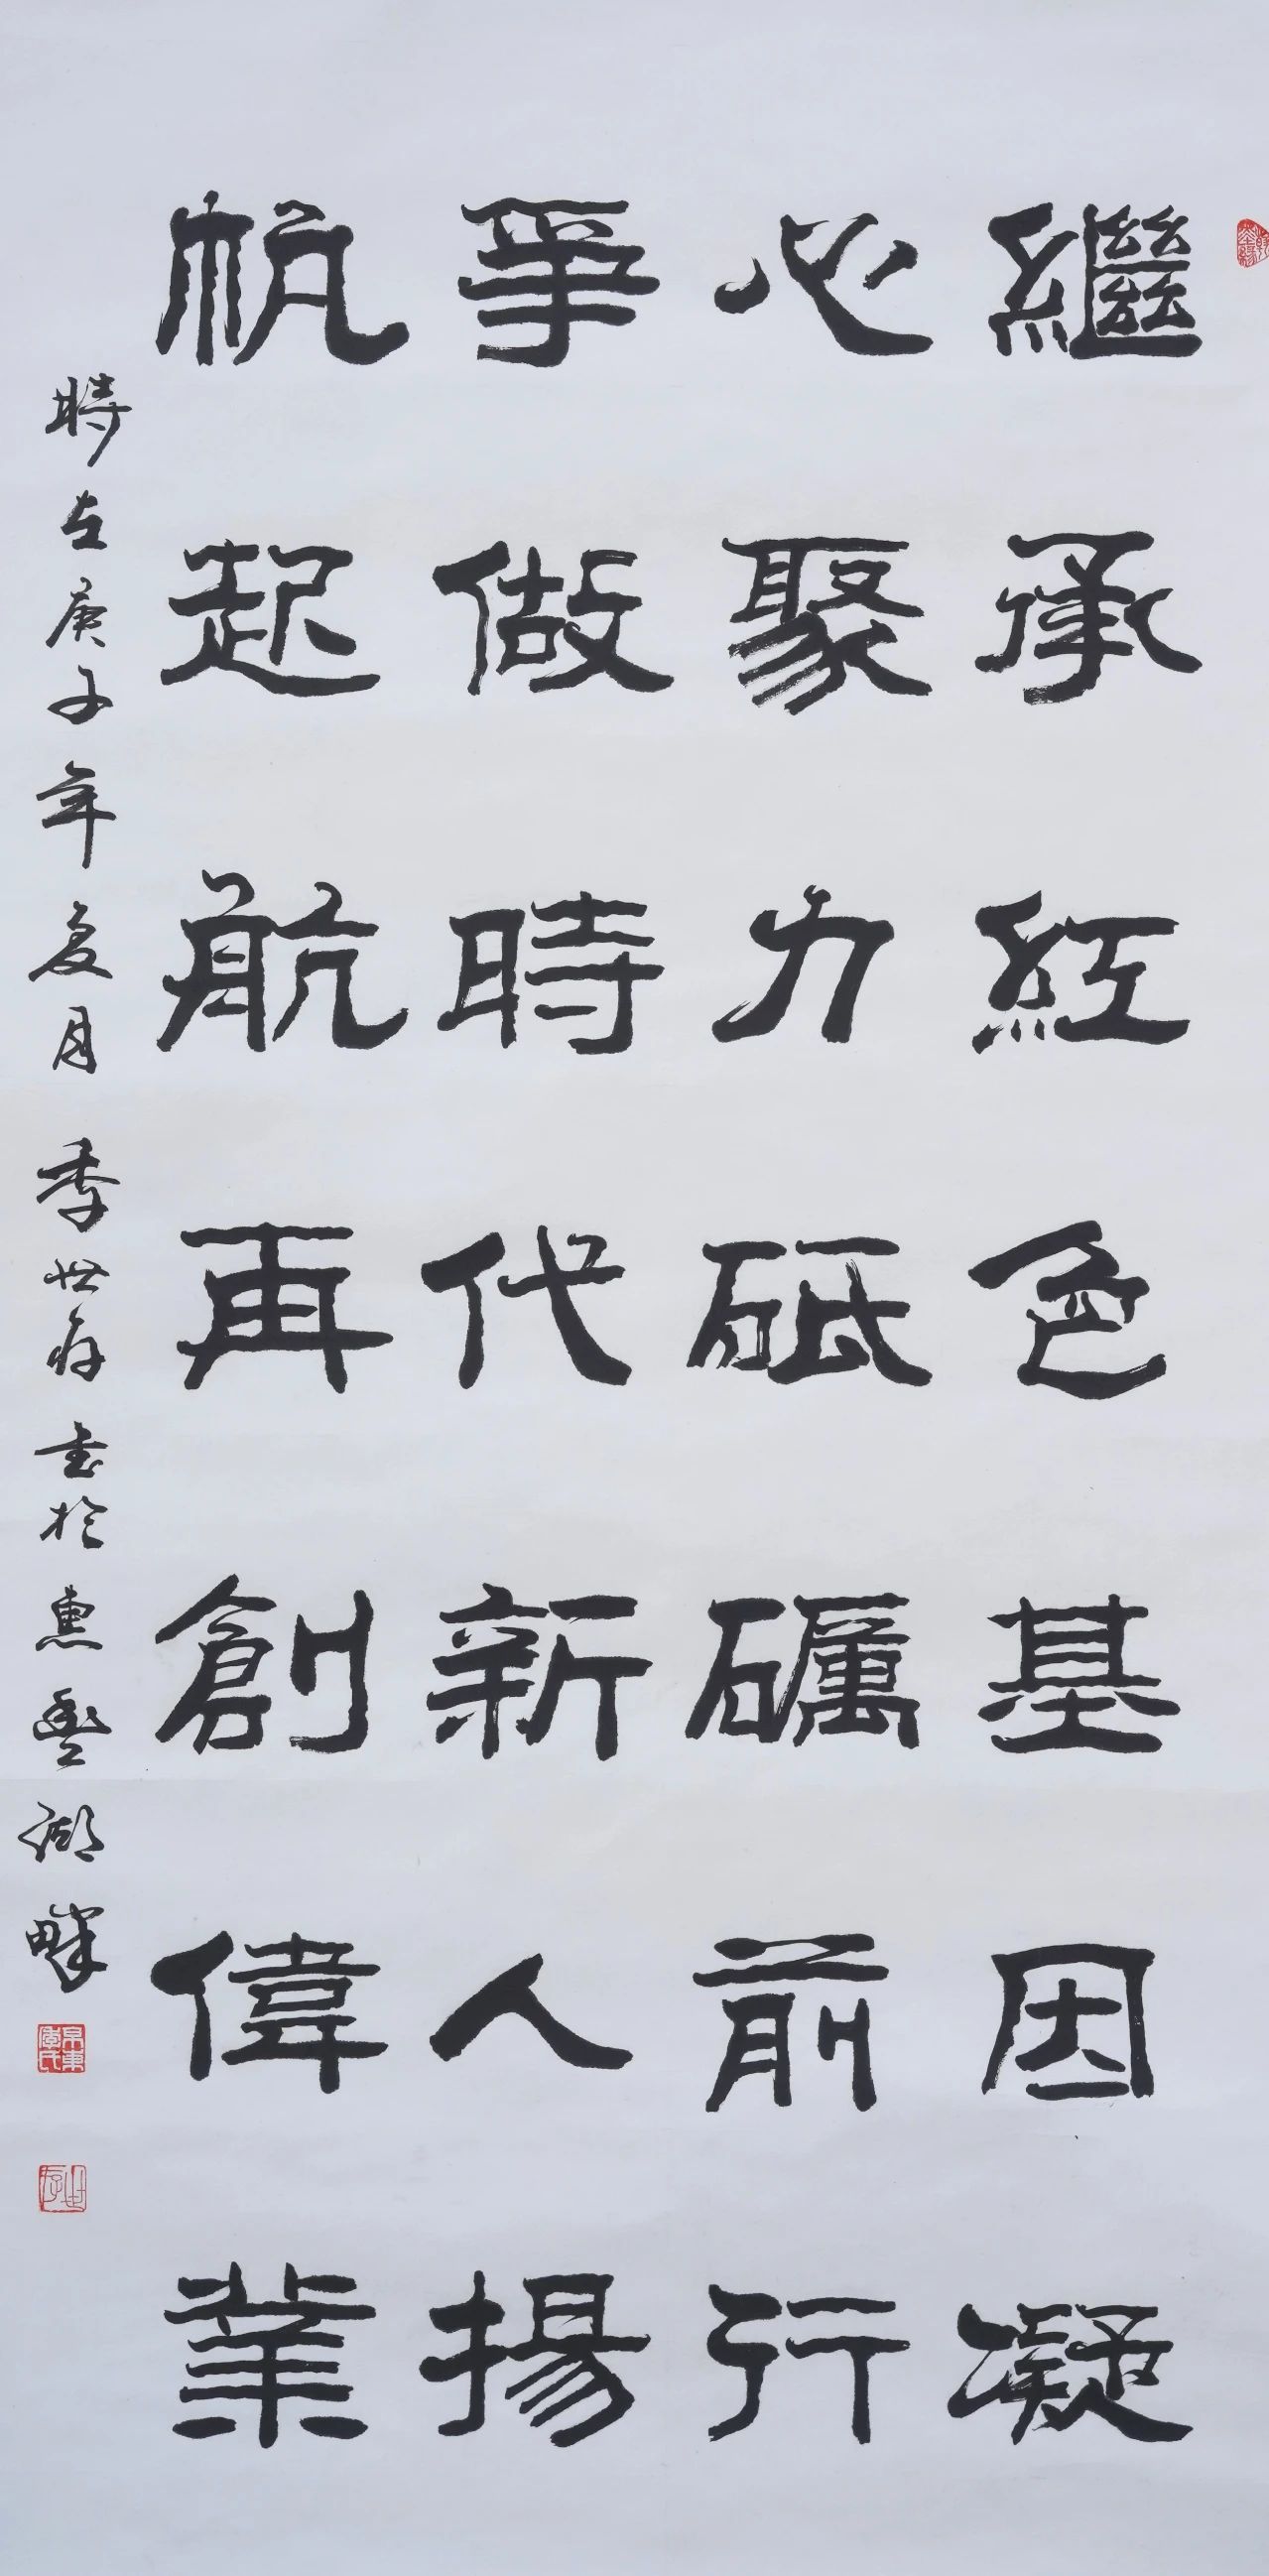 繼承紅色基因凝
心聚力砥礪前行
爭做時代新人揚
帆起航再創偉業
時在庚子年夏月 季世存書於惠豐湖畔